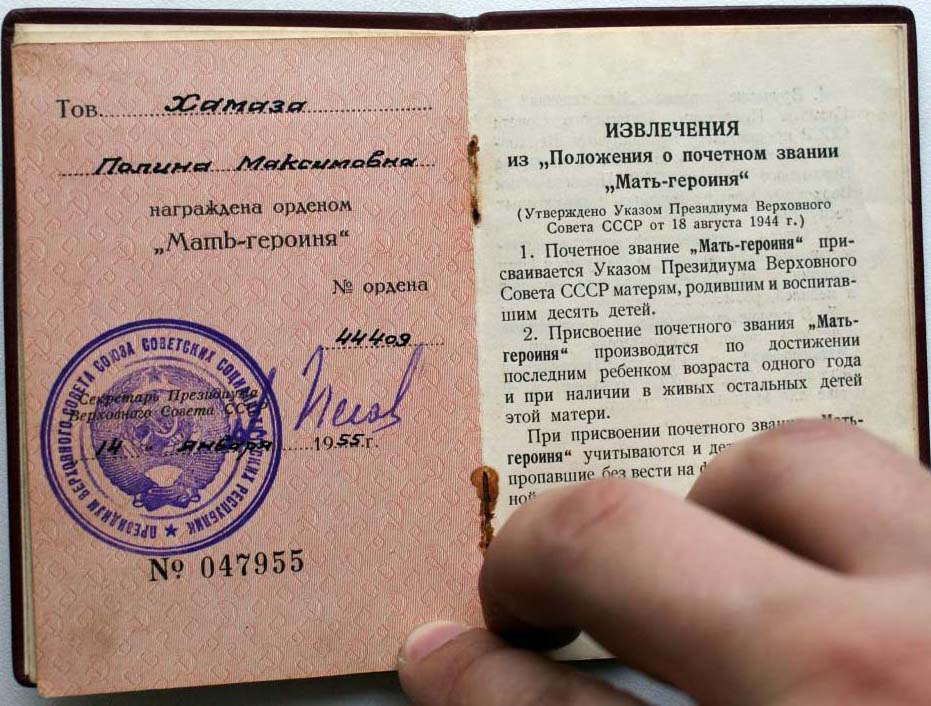 Тов. Хамаза
Полина Максимовна
награждена орденом
„Мать-героиня“
№ ордена
44409
Секретарь Президиума
Верховного Совета СССР
14 января 1955 г.
№ 047955
ПРЕЗИДИУМ ВЕРХОВНОГО СОВЕТА СОЮЗА СОВЕТСКИХ СОЦИАЛИСТИЧЕСКИХ РЕСПУБЛИК
ИЗВЛЕЧЕНИЯ
из „Положения о почетном звании
„Мать-героиня“
(Утверждено Указом Президиума Верховного
Совета СССР от 18 августа 1944 г.)
1. Почетное звание „Мать-героиня“ при-
сваивается Указом Президиума Верховного
Совета СССР матерям, родившим и воспитав-
шим десять детей.
2. Присвоение почетного звания „Мать-
героиня“ производится по достижении
последним ребенком возраста одного года
и при наличии в живых остальных детей
этой матери.
При присвоении почетного звания „Мать-
героиня“ учитываются и
пропавшие без вести на
ной